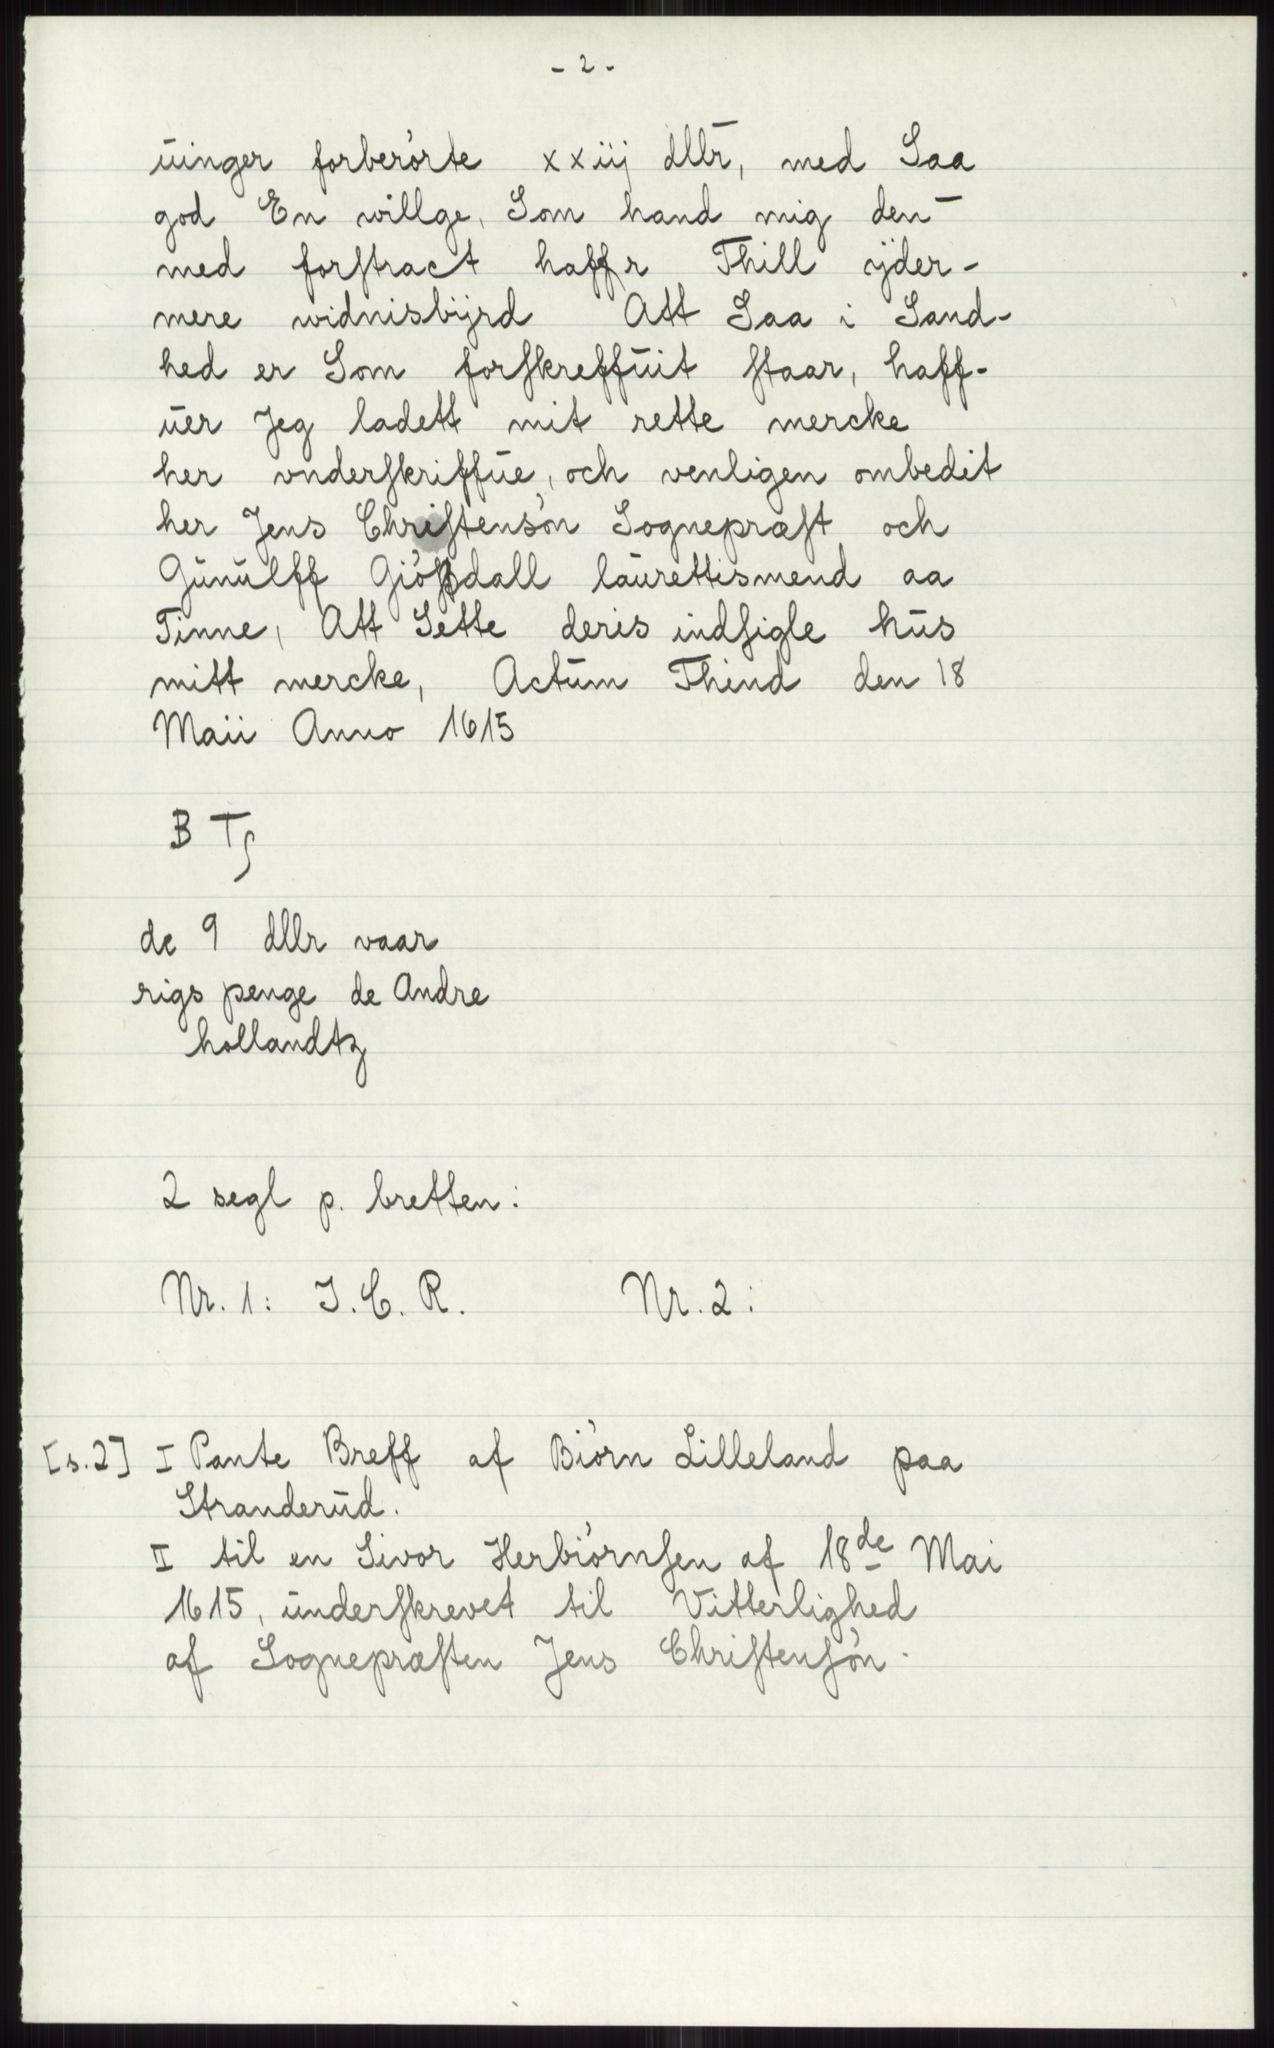 - 2 -
ŭinger forberörte xxiij dllr̄, med Saa
god En willge, Som hand mig den̄
med forſtract haffr Thill ÿder-
mere widnisbÿrd Att Saa i Sand-
hed er Som forſkreffŭit ſtaar, haff-
ŭer Jeg ladett mit rette mercke
her vnderſkriffŭe, och venligen ombedit
her Jens Chriſtensön Sognepræſt och
Gŭnŭlff Giößdall laŭrettismend aa
Tinne, Att Sette deris indſigle hŭs
mitt mercke, Actŭm Thind den 18
Maii Anno 1615
B T
de 9 dllr vaar
rigs penge de Andre
hollandtz
2 segl p. bretten:
Nr. 1: J. C. R. Nr. 2:
[s.2] I Pante Breff af Biörn Lilleland paa
Stranderŭd.
II til en Sivor Herbiörnſen af 18de Mai
1615, ŭnderſkrevet til Vitterlighed
af Sognepræſten Jens Chriſtenſön.